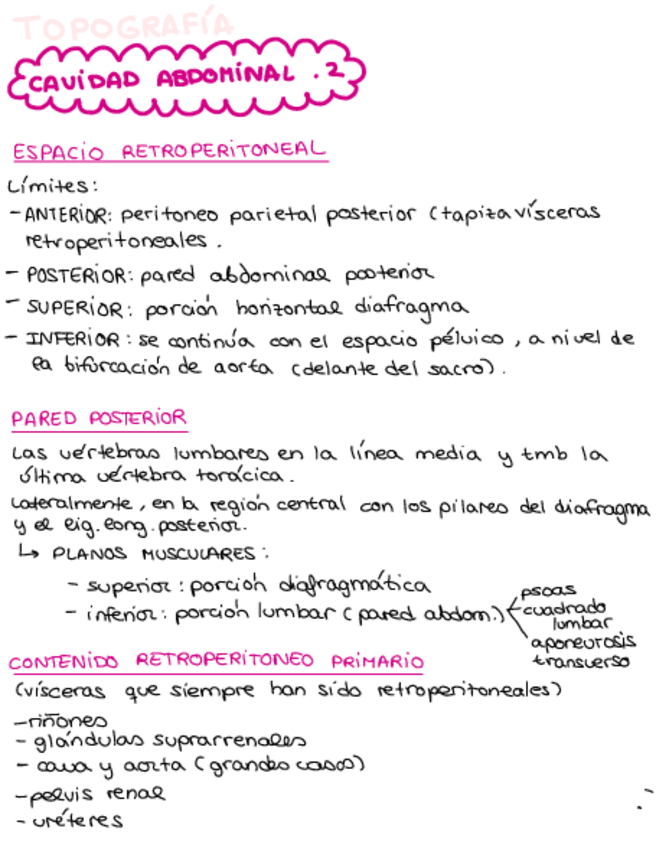 TOPOGRAFÍA
CAVIDAD ABDOMINAL . 2
ESPACIO RETROPERITONEAL
Límites:
- ANTERIOR: peritoneo parietal posterior (tapiza vísceras
retroperitoneales.
- POSTERIOR: pared abdominal posterior
- SUPERIOR: porción horizontal diafragma
- INFERIOR: se continúa con el espacio pélvico, a nivel de
la bifurcación de aorta (delante del sacro).
PARED POSTERIOR
Las vértebras lumbares en la línea media y tmb la
última vértebra torácica.
Lateralmente, en la región central con los pilares del diafragma
y el lig. long. posterior.
↳ PLANOS MUSCULARES:
- superior: porción diafragmática
- inferior: porción lumbar (pared abdom.)
psoas
cuadrado
lumbar
aponeurosis
transverso
CONTENIDO RETROPERITONEO PRIMARIO
(vísceras que siempre han sido retroperitoneales)
- riñones
- glándulas suprarrenales
- cava y aorta (grandes casos)
- pelvis renal
- uréteres